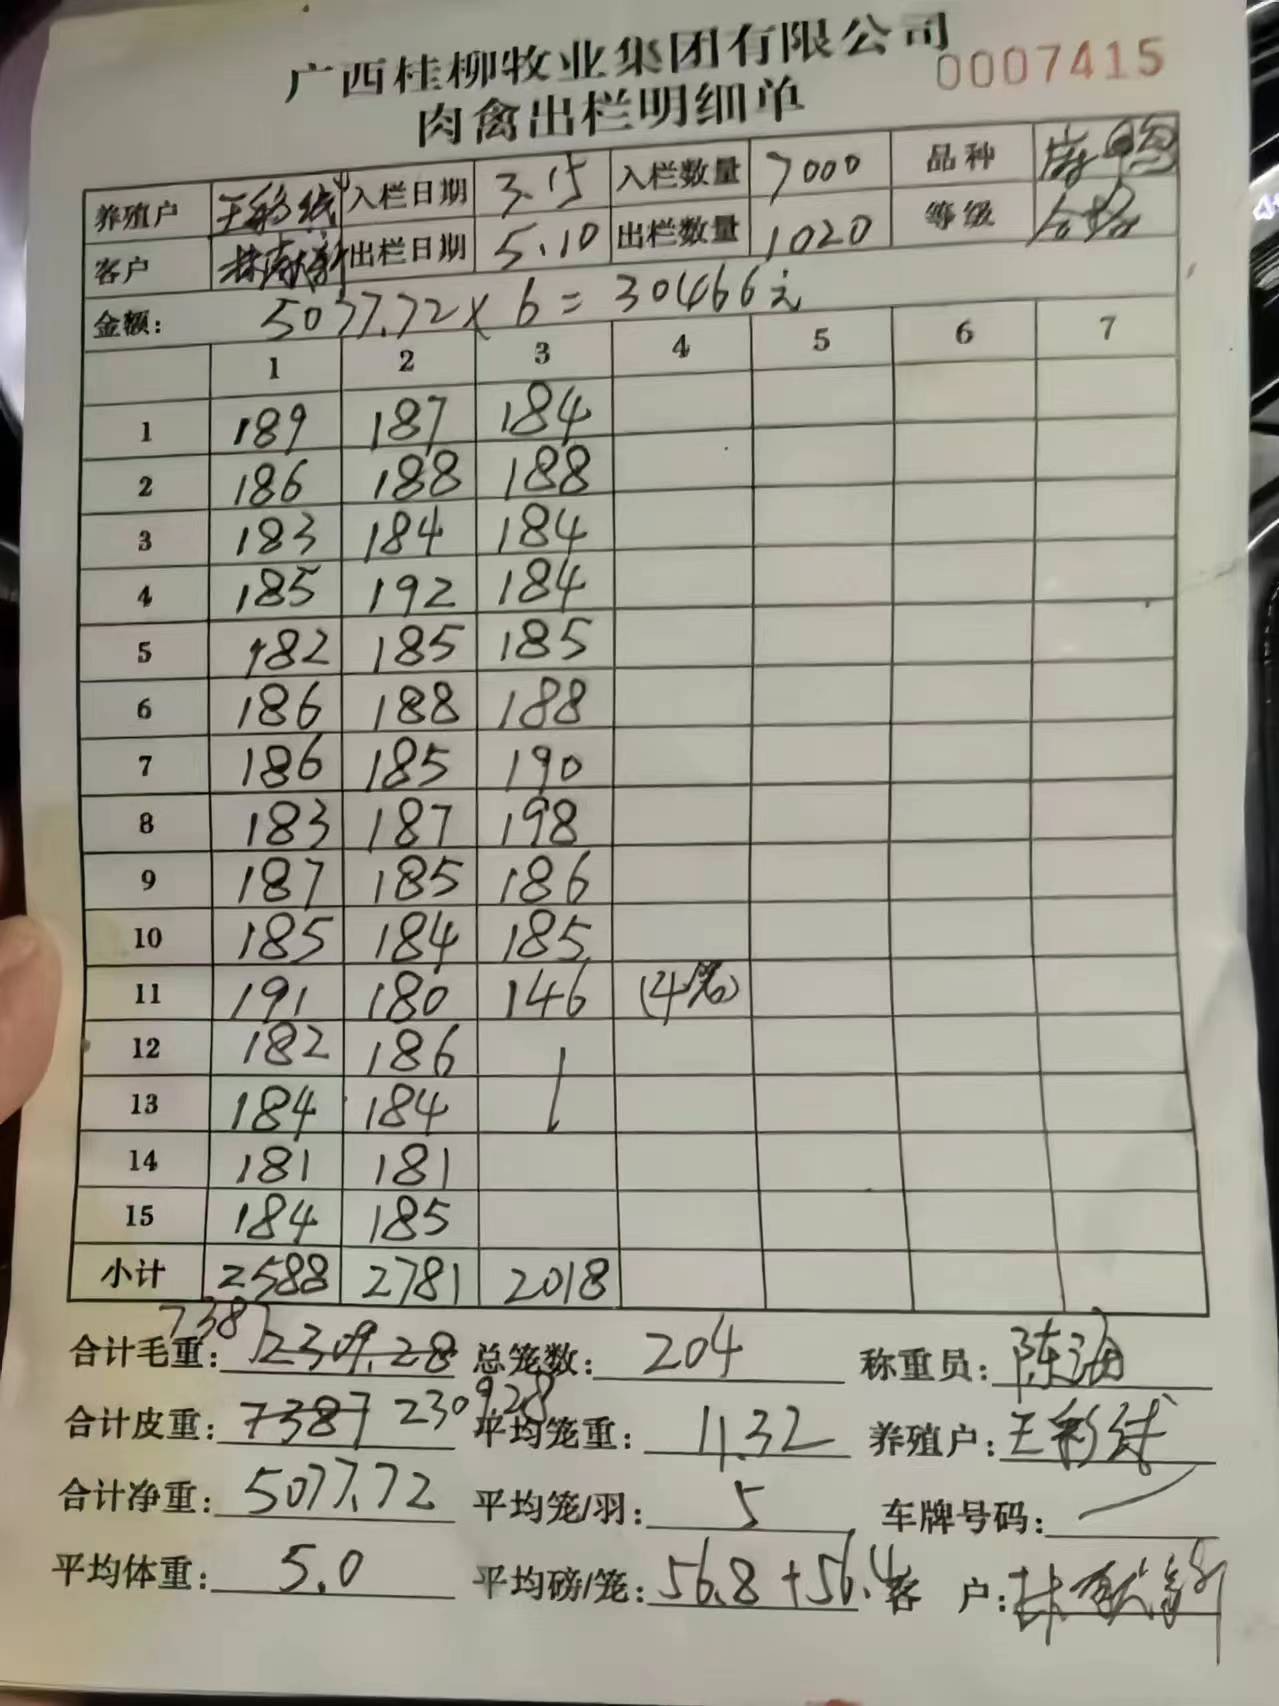 广西桂柳牧业集团有限公司
0007415
肉禽出栏明细单
养殖户 王彩线 入栏日期 3.15 入栏数量 7000 品种
客户 出栏日期 5.10 出栏数量 1020 等级 合格
金额: 5077.72 x 6 = 30466元
1 2 3 4 5 6 7
1 189 187 184
2 186 188 188
3 183 184 184
4 185 192 184
5 182 185 185
6 186 188 188
7 186 185 190
8 183 187 198
9 187 185 186
10 185 184 185
11 191 180 146 (4笼)
12 182 186
13 184 184
14 181 181
15 184 185
小计 2588 2781 2018
合计毛重: 7387 2309.28 总笼数: 204 称重员: 陈海
合计皮重: 7387 2309.28 平均笼重: 11.32 养殖户: 王彩线
合计净重: 5077.72 平均笼/羽: 5 车牌号码:
平均体重: 5.0 平均磅/笼: 56.8+56.4 客 户: